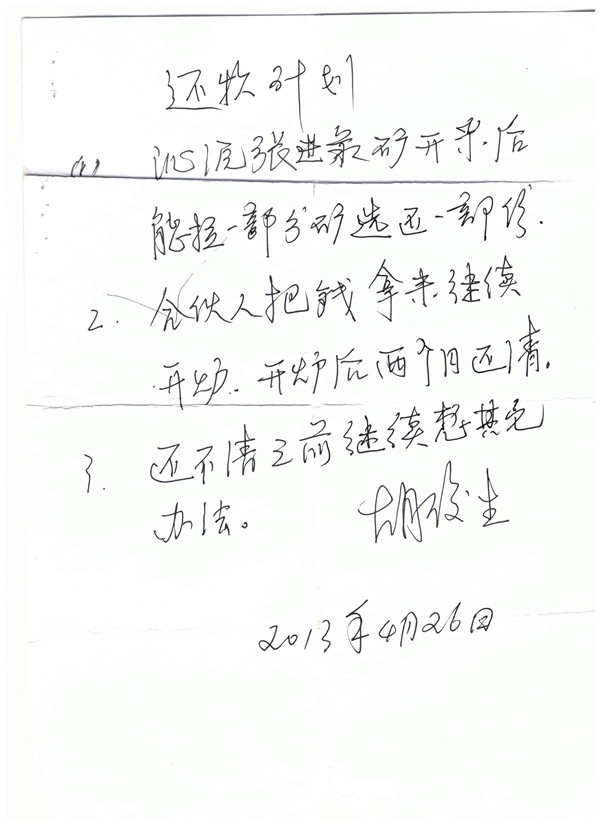 还款计划
(1) 张进录矿开采后
能拉一部分矿选还一部份.
2. 合伙人把钱拿来继续
开炉. 开炉后两个月还清。
3. 还不清之前继续想其它
办法。 胡俊生
2013年4月26日